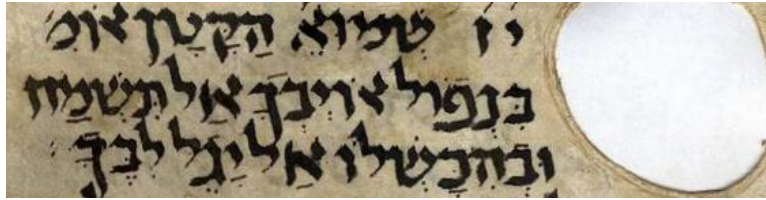 יז שְׁמוּאֵ הַקָּטָן אומ'
בִּנְפוֹל אויִבְךָ אַל תִּשְׂמַח
ובְהִכָּשְׁלוֹ אַל יָגֵל לִבֶּךָ